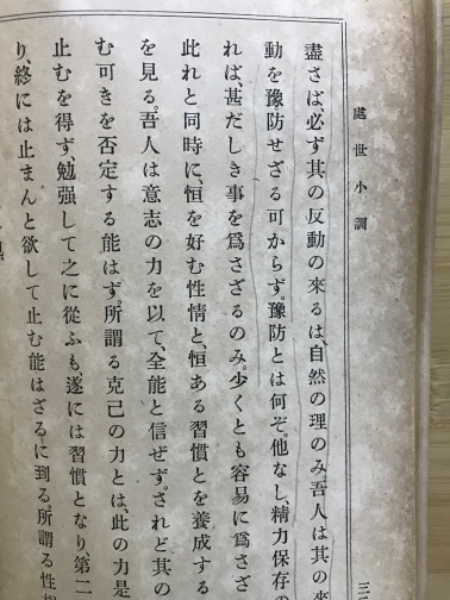 處世小訓
盡さば、必ず其の反動の來るは、自然の理のみ、吾人は其の來
動を豫防せざる可からず。豫防とは何ぞ。他なし、精力保存の
れば、甚だしき事を爲さざるのみ。少くとも容易に爲さざ
此れと同時に、恒を好む性情と、恒ある習慣とを養成する
を見る。吾人は意志の力を以て、全能と信ぜず。されど其の
む可きを否定する能はず。所謂る克己の力とは、此の力是
止むを得ず、勉强して之に從ふも、遂には習慣となり、第二
り、終には止まんと欲して止む能はざるに到る。所謂る性